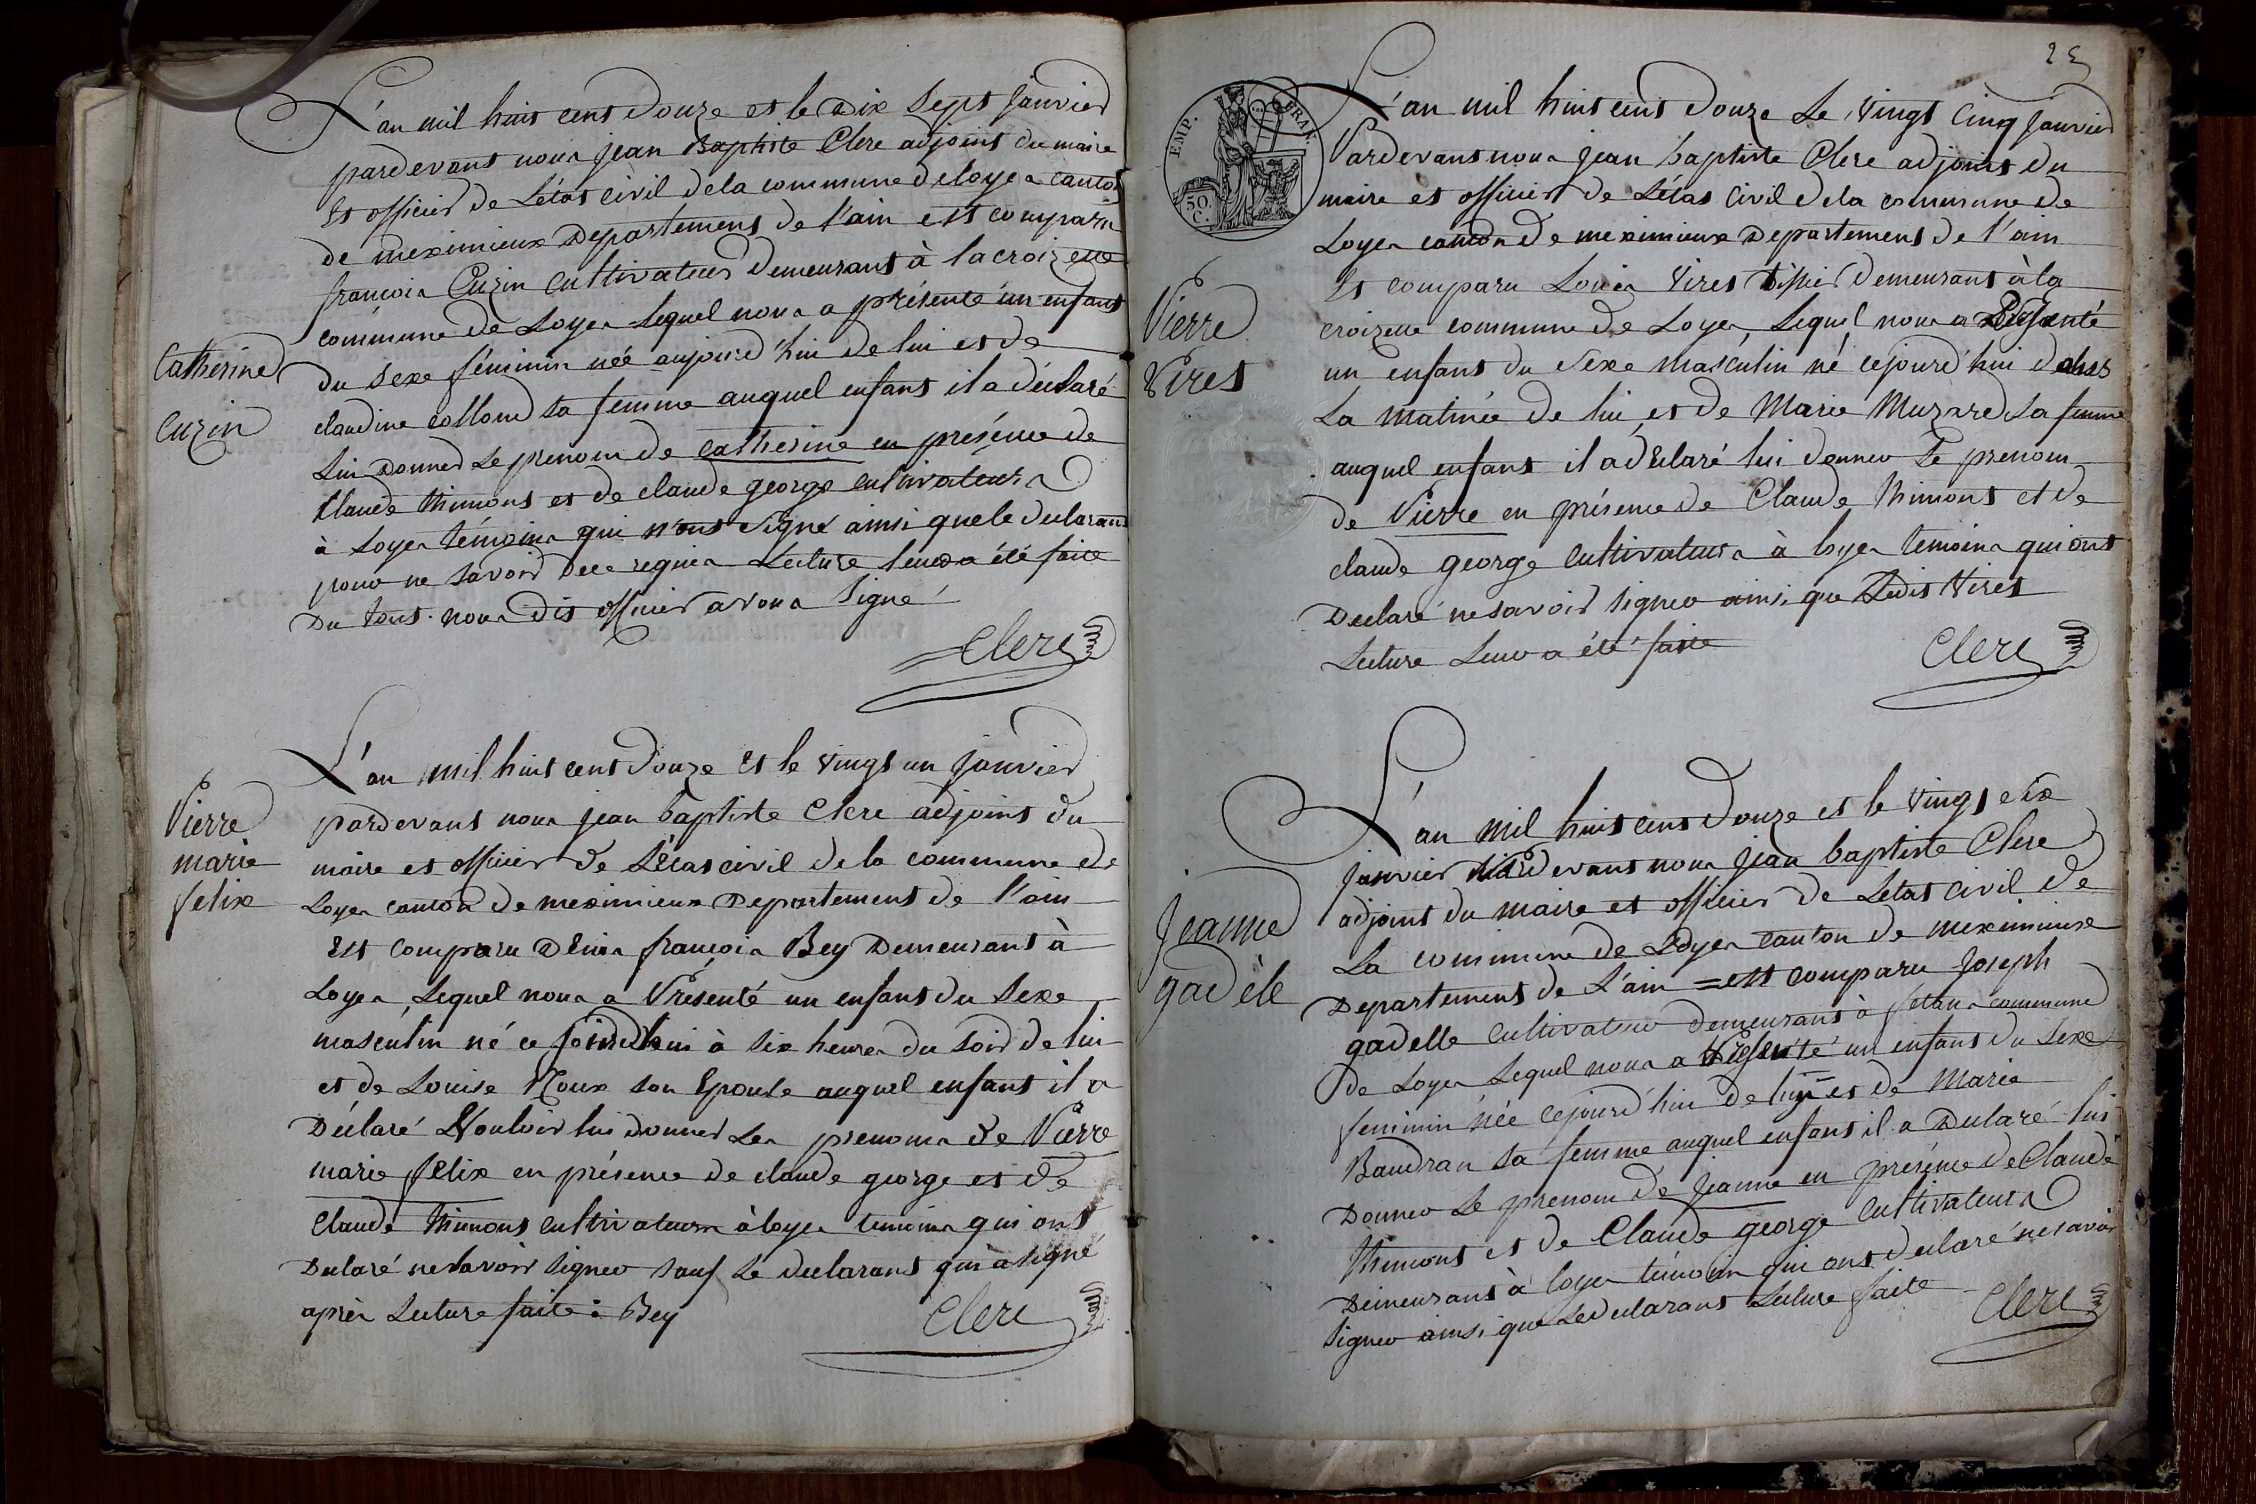 L'an mil huit cent Douze et le Dix Sept Janvier
pardevant nous jean Baptiste Clerc adjoint du maire
Et officier de L'état civil de la commune de loyes canton
de meximieux Departement de l'ain est comparu
françois Cuzin cultivateur demeurant à la croizette
commune de Loyes Lequel nous a présenté un enfant
Catherine
Cuzin
du sexe féminin née aujourd'hui de lui et de
claudine collomb sa femme auquel enfant il a déclaré
lui Donner Le prenom de catherine en présence de
Claude thimont et de claude george cultivateurs
à Loyes témoins qui n'ont signé ainsi que le declarant
pour ne savoir de ce requis Lecture leur a été faite
Du tout. nous dit officier avons signé
Clerc
L'an mil huit cent Douze Et le vingt un janvier
Pierre
marie
felix
pardevant nous jean baptiste Clerc adjoint du
maire et officier de L'état civil de la commune de
Loyes canton de meximieux Departement de l'ain
Est comparu Denis françois Bey Demeurant à
Loyes, Lequel nous a Présenté un enfant du Sexe
masculin né ce jourd'hui à six heures du soir de lui
et de Louise Roux son Epouse auquel enfant il a
Déclaré Vouloir lui donner Les prenoms de Pierre
marie felix en présence de claude george et de
Claude thimont cultivateurs à loyes temoins qui ont
Declaré ne savoir signer sauf Le declarant qui a signé
après Lecture faite : Bey
Clerc
25
EMP. FRAN.
50.
C.
L'an mil huit cent Douze Le vingt Cinq Janvier
Pardevant nous jean baptiste Clerc adjoint du
maire et officier de L'état Civil de la commune de
Loyes canton de meximieux Departement de l'ain
Pierre
Vires
Est comparu Louis Vires demeurant à la
croizette commune de Loyes, Lequel nous a Présenté
un enfant du Sexe Masculin né cejourd'hui dans
La matinée de lui et de Marie Muzard sa femme
auquel enfant il a déclaré lui donner Le prenom
de Pierre en présence de Claude thimont et de
claude george cultivateurs à loyes temoins qui ont
Declaré ne savoir signer ainsi que Ledit Vires
Lecture Leur a été faite
Clerc
L'an mil huit cent Douze et le vingt six
Janvier Pardevant nous Jean baptiste Clerc
Jeanne
gadèle
adjoint du maire et officier de L'état civil de
La commune de Loyes canton de meximieux
Departement de L'ain = est comparu Joseph
gadelle cultivateur demeurant à fetans commune
de Loyes Lequel nous a Présenté un enfant du Sexe
feminin née cejourd'hui de lui et de Marie
Baudran sa femme auquel enfant il a Declaré lui
Donner Le prenom de Jeanne en présence de Claude
thimont et de Claude george cultivateurs
Demeurant à loyes témoins qui ont declaré ne savoir
signer ainsi que Le declarant Lecture faite
Clerc